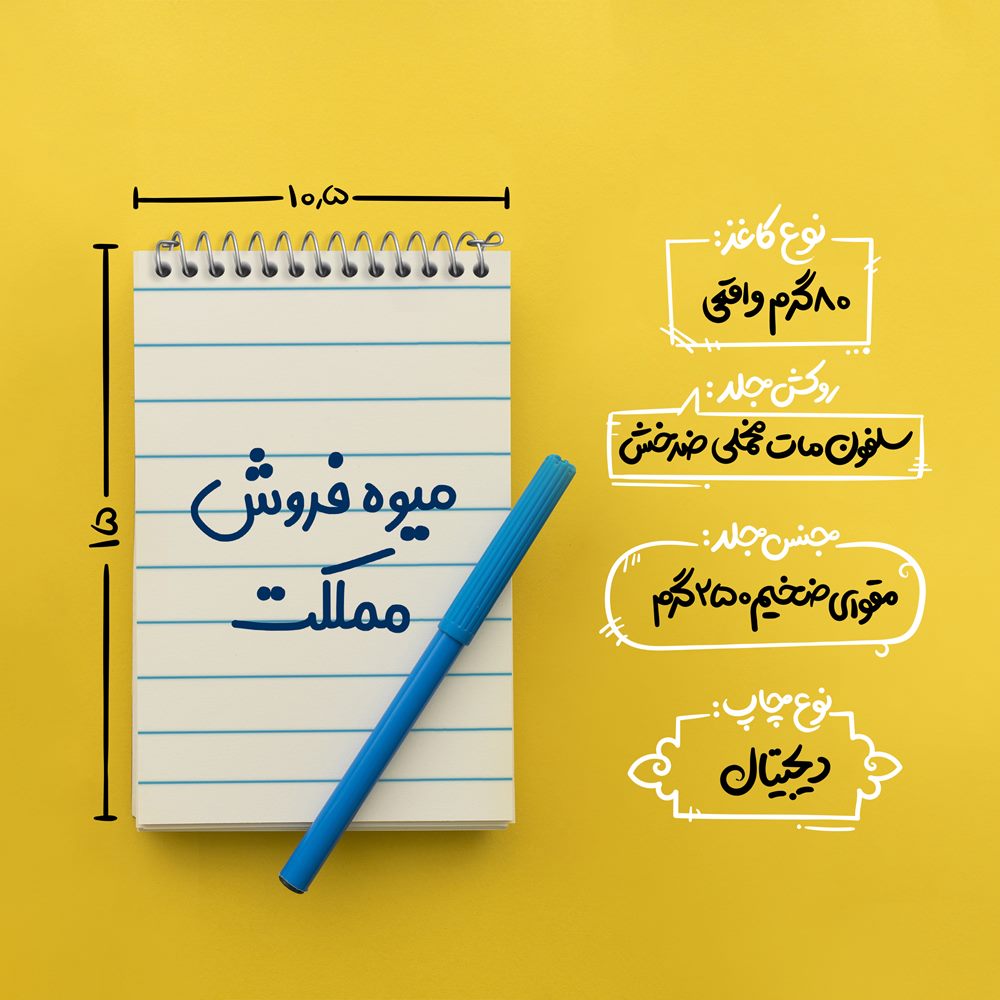 ۱۰٫۵
۱۵
میوه فروش
مملکت
نوع کاغذ:
۸۰ گرم واقعی
روکش جلد:
سلفون مات مخملی ضدخش
جنس جلد:
مقوای ضخیم ۲۵۰ گرم
نوع چاپ:
دیجیتال